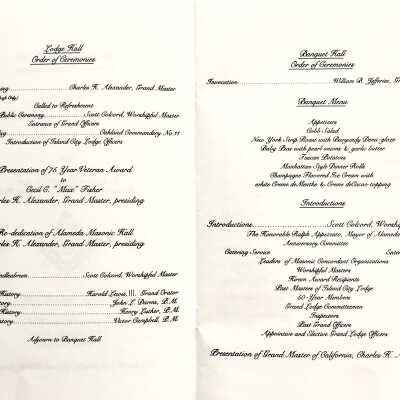 Lodge Hall
Order of Ceremonies
Charles H. Alexander, Grand Master
Called to Refreshment
Public Ceremony Scott Colvord, Worshipful Master
Entrance of Grand Officers
Oakland Commandery No. 11
Introduction of Island City Lodge Officers
Presentation of 75 Year Veteran Award
to
Cecil G. "Max" Fisher
les H. Alexander, Grand Master, presiding
Re-dedication of Alameda Masonic Hall
les H. Alexander, Grand Master, presiding
Scott Colvord, Worshipful Master
History Harold Lewis, III. Grand Orator
tory John L. Dunn, P.M.
History Henry Luther, P.M.
tory Victor Campbell, P.M.
Adjourn to Banquet Hall
Banquet Hall
Order of Ceremonies
Invocation William B. Jefferies, Gr
Banquet Menu
Appetizers
Cobb Salad
New York Strip Roast with Burgundy Demi-glaze
Baby Peas with pearl onions & garlic butter
Tuscan Potatoes
Manhattan Style Dinner Rolls
Champagne Flavored Ice Cream with
white Creme de Menthe & Creme deCacao topping
Introductions
Introductions Scott Colvord, Worshipf
The Honorable Ralph Appezato, Mayor of Alameda
Anniversary Committee
Catering Service Enter
Leaders of Masonic Concordant Organizations
Worshipful Masters
Hiram Award Recipients
Past Masters of Island City Lodge
50-Year Members
Grand Lodge Committeemen
Inspectors
Past Grand Officers
Appointive and Elective Grand Lodge Officers
Presentation of Grand Master of California, Charles H. A